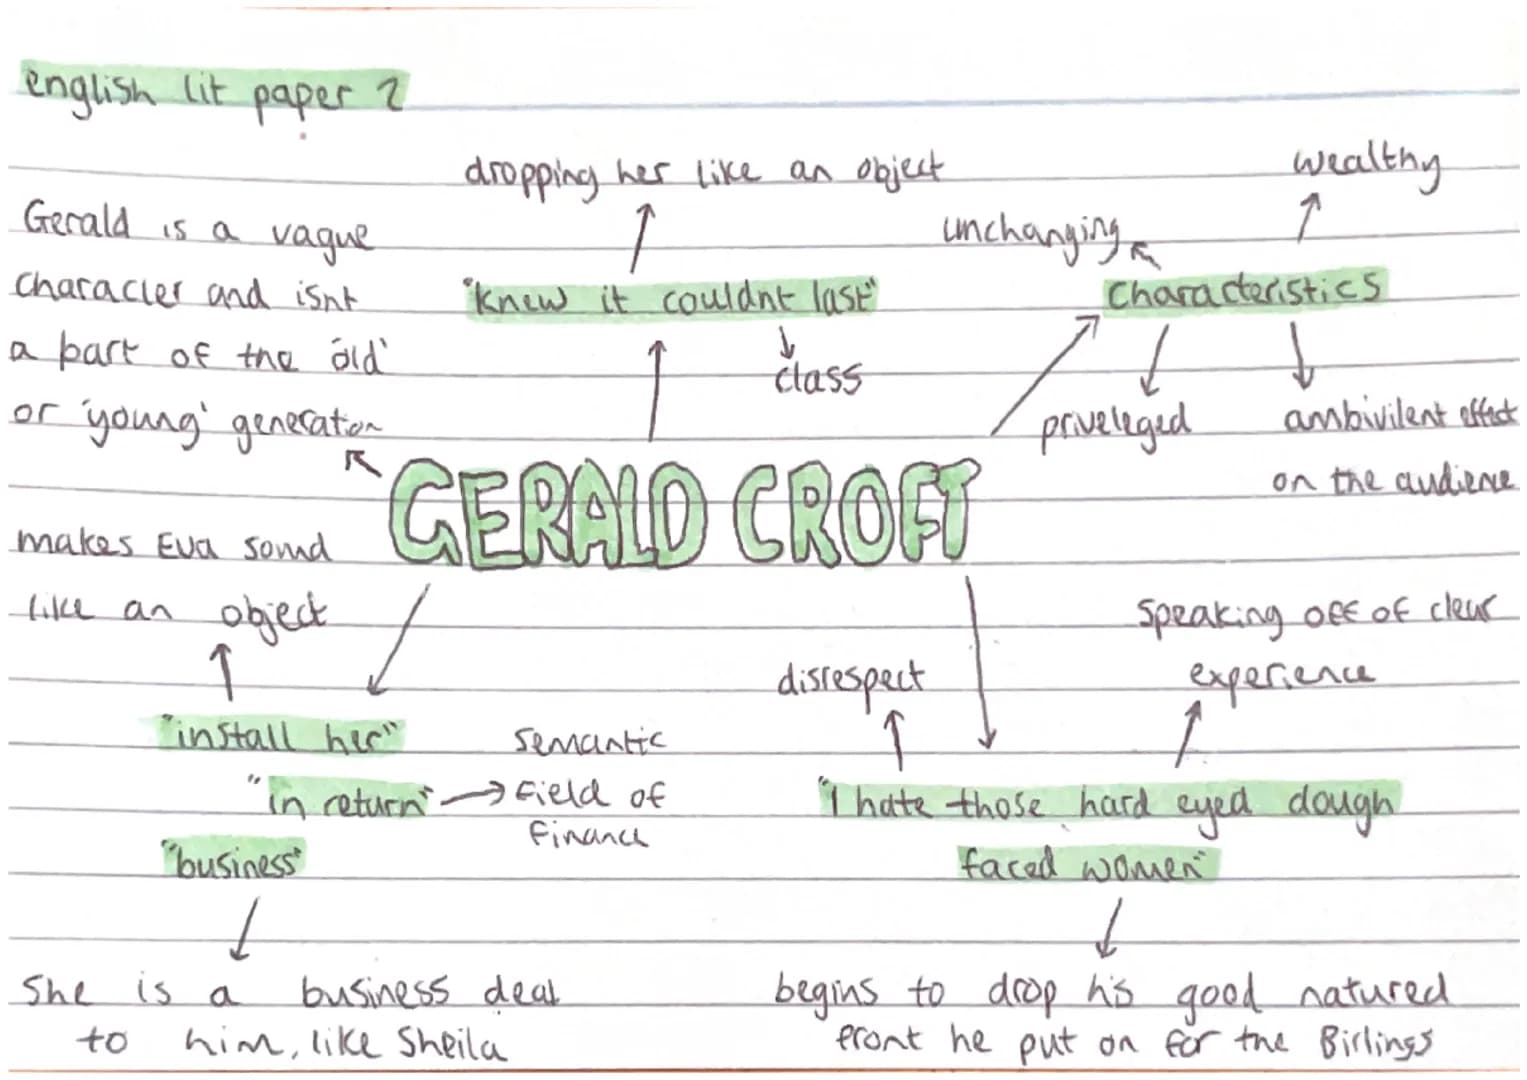 english lit paper 2
dropping her like an object
wealthy
Gerald is a vague
character and isnt
a part of the 'old'
or 'young' generation
unchanging
"knew it couldnt last"
class
characteristics
priveleged
ambivilent effect
on the audience
GERALD CROFT
makes Eva sound
like an object
"install her"
"in return"
semantic
field of
finance
"business"
she is a business deal
to him, like Sheila
disrespect
speaking off of clear
experience
"I hate those hard eyed dough
faced women"
begins to drop his good natured
front he put on for the Birlings